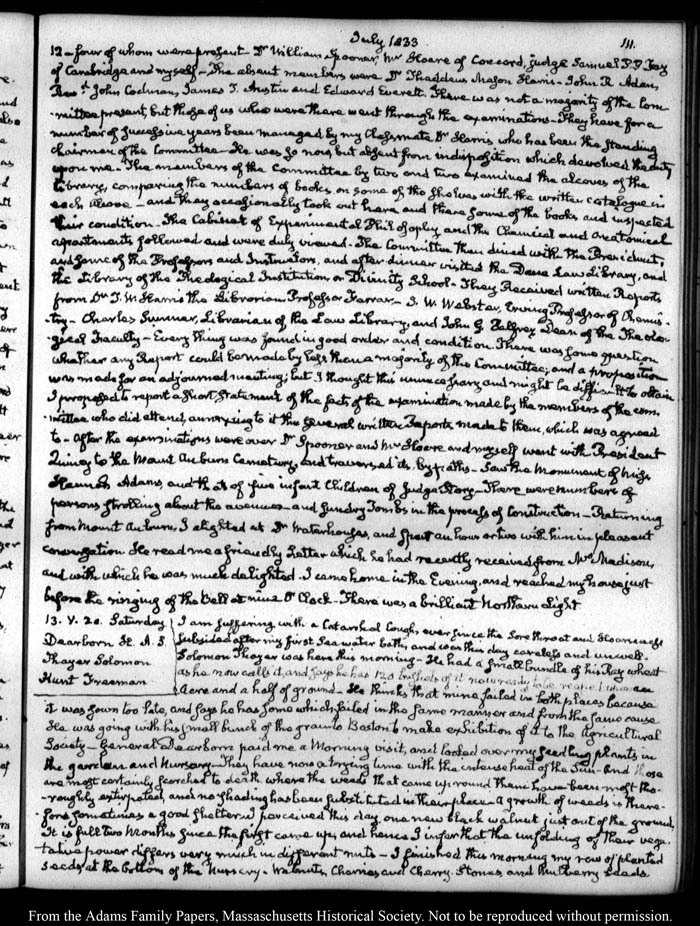 July 1833
111.
12 - four of whom were present - Dr William Spooner, Mr Hoare of Concord, Judge Samuel P. P. Fay
of Cambridge and myself - The absent members were Dr Thaddeus Mason Harris - John R. Adan,
Revd John Codman, James T. Austin and Edward Everett. There was not a majority of the Com-
-mittee present, but those of us who were there went through the examinations - They have for a
number of successive years been managed by my Classmate Dr Harris who has been the standing
Chairman of the Committee - He was so now, but absent from indisposition which devolved the duty
upon me - The members of the Committee by two and two examined the alcoves of the
Library, comparing the numbers of books on some of the shelves with the written catalogue in
each alcove - and they occasionally took out here and there some of the books and inspected
their condition. The Cabinet of Experimental Philosophy and the Chemical and Anatomical
apartments followed and were duly viewed. The Committee then dined with the President,
and some of the Professors and Instructors, and after dinner visited the Dane Law Library, and
the Library of the Theological Institution or Divinity School - They Received written Reports
from Dr T. W. Harris the Librarian, Professor Farrar - J. W. Webster, Erving Professor of Chemis-
-try - Charles Sumner, Librarian of the Law Library, and John G. Palfrey Dean of the Theolo-
gical Faculty - Every thing was found in good order and condition. There was some question
whether any Report could be made by less than a majority of the Committee; and a proposition
was made for an adjourned meeting; but I thought this unnecessary and might be difficult to obtain
I proposed to report a short statement of the facts of the examination made by the members of the com-
-mittee who did attend, annexing to it the several written Reports made to them, which was agreed
to - After the examinations were over Dr Spooner and Mr Hoare and myself went with President
Quincy to the Mount Auburn Cemetery, and traversed its by-paths - Saw the Monument of Miss
Hannah Adams, and that of five infant Children of Judge Story - There were numbers of
persons strolling about the avenues - and sundry Tombs in the process of construction - Returning
from Mount Auburn, I alighted at Dr Waterhouse's, and spent an hour or two with him in pleasant
conversation. He read me a friendly Letter which he had recently received from Mrs Madison,
and with which he was much delighted. I came home in the Evening, and reached my house just
before the ringing of the Bell at nine O'Clock - There was a brilliant Northern Light
13. V. 20. Saturday
Dearborn H. A. S.
Thayer Solomon
Hunt Freeman
I am suffering with a Catarrhal Cough, ever since the sore throat and Hoarseness
subsided after my first Sea water bath, and was this day careless and unwell.
Solomon Thayer was here this morning - He had a small bundle of his Ray wheat
as he now calls it, and says he has 120 bushels of it now ready to be reaped upon an
Acre and a half of ground - He thinks that mine failed in both places because
it was sown too late, and says he has some which failed in the same manner and from the same cause
He was going with his small bunch of the grain to Boston to make exhibition of it to the Agricultural
Society - General Dearborn paid me a Morning visit, and looked over my seedling plants in
the garden and Nursery - They have now a trying time with the intense heat of the Sun - And those
are most certainly scorched to death where the weeds that came up round them have been most tho-
-roughly extirpated, and no shading has been substituted in their place. A growth of weeds is there-
fore sometimes a good shelter. I perceived this day, one new black walnut just out of the ground
It is full two Months since the first came up, and hence I infer that the unfolding of their vege-
tative power differs very much in different nuts - I finished this morning my row of planted
seeds at the bottom of the Nursery - Walnuts, and Cherry-Stones, and Mulberry seeds
From the Adams Family Papers, Massachusetts Historical Society. Not to be reproduced without permission.